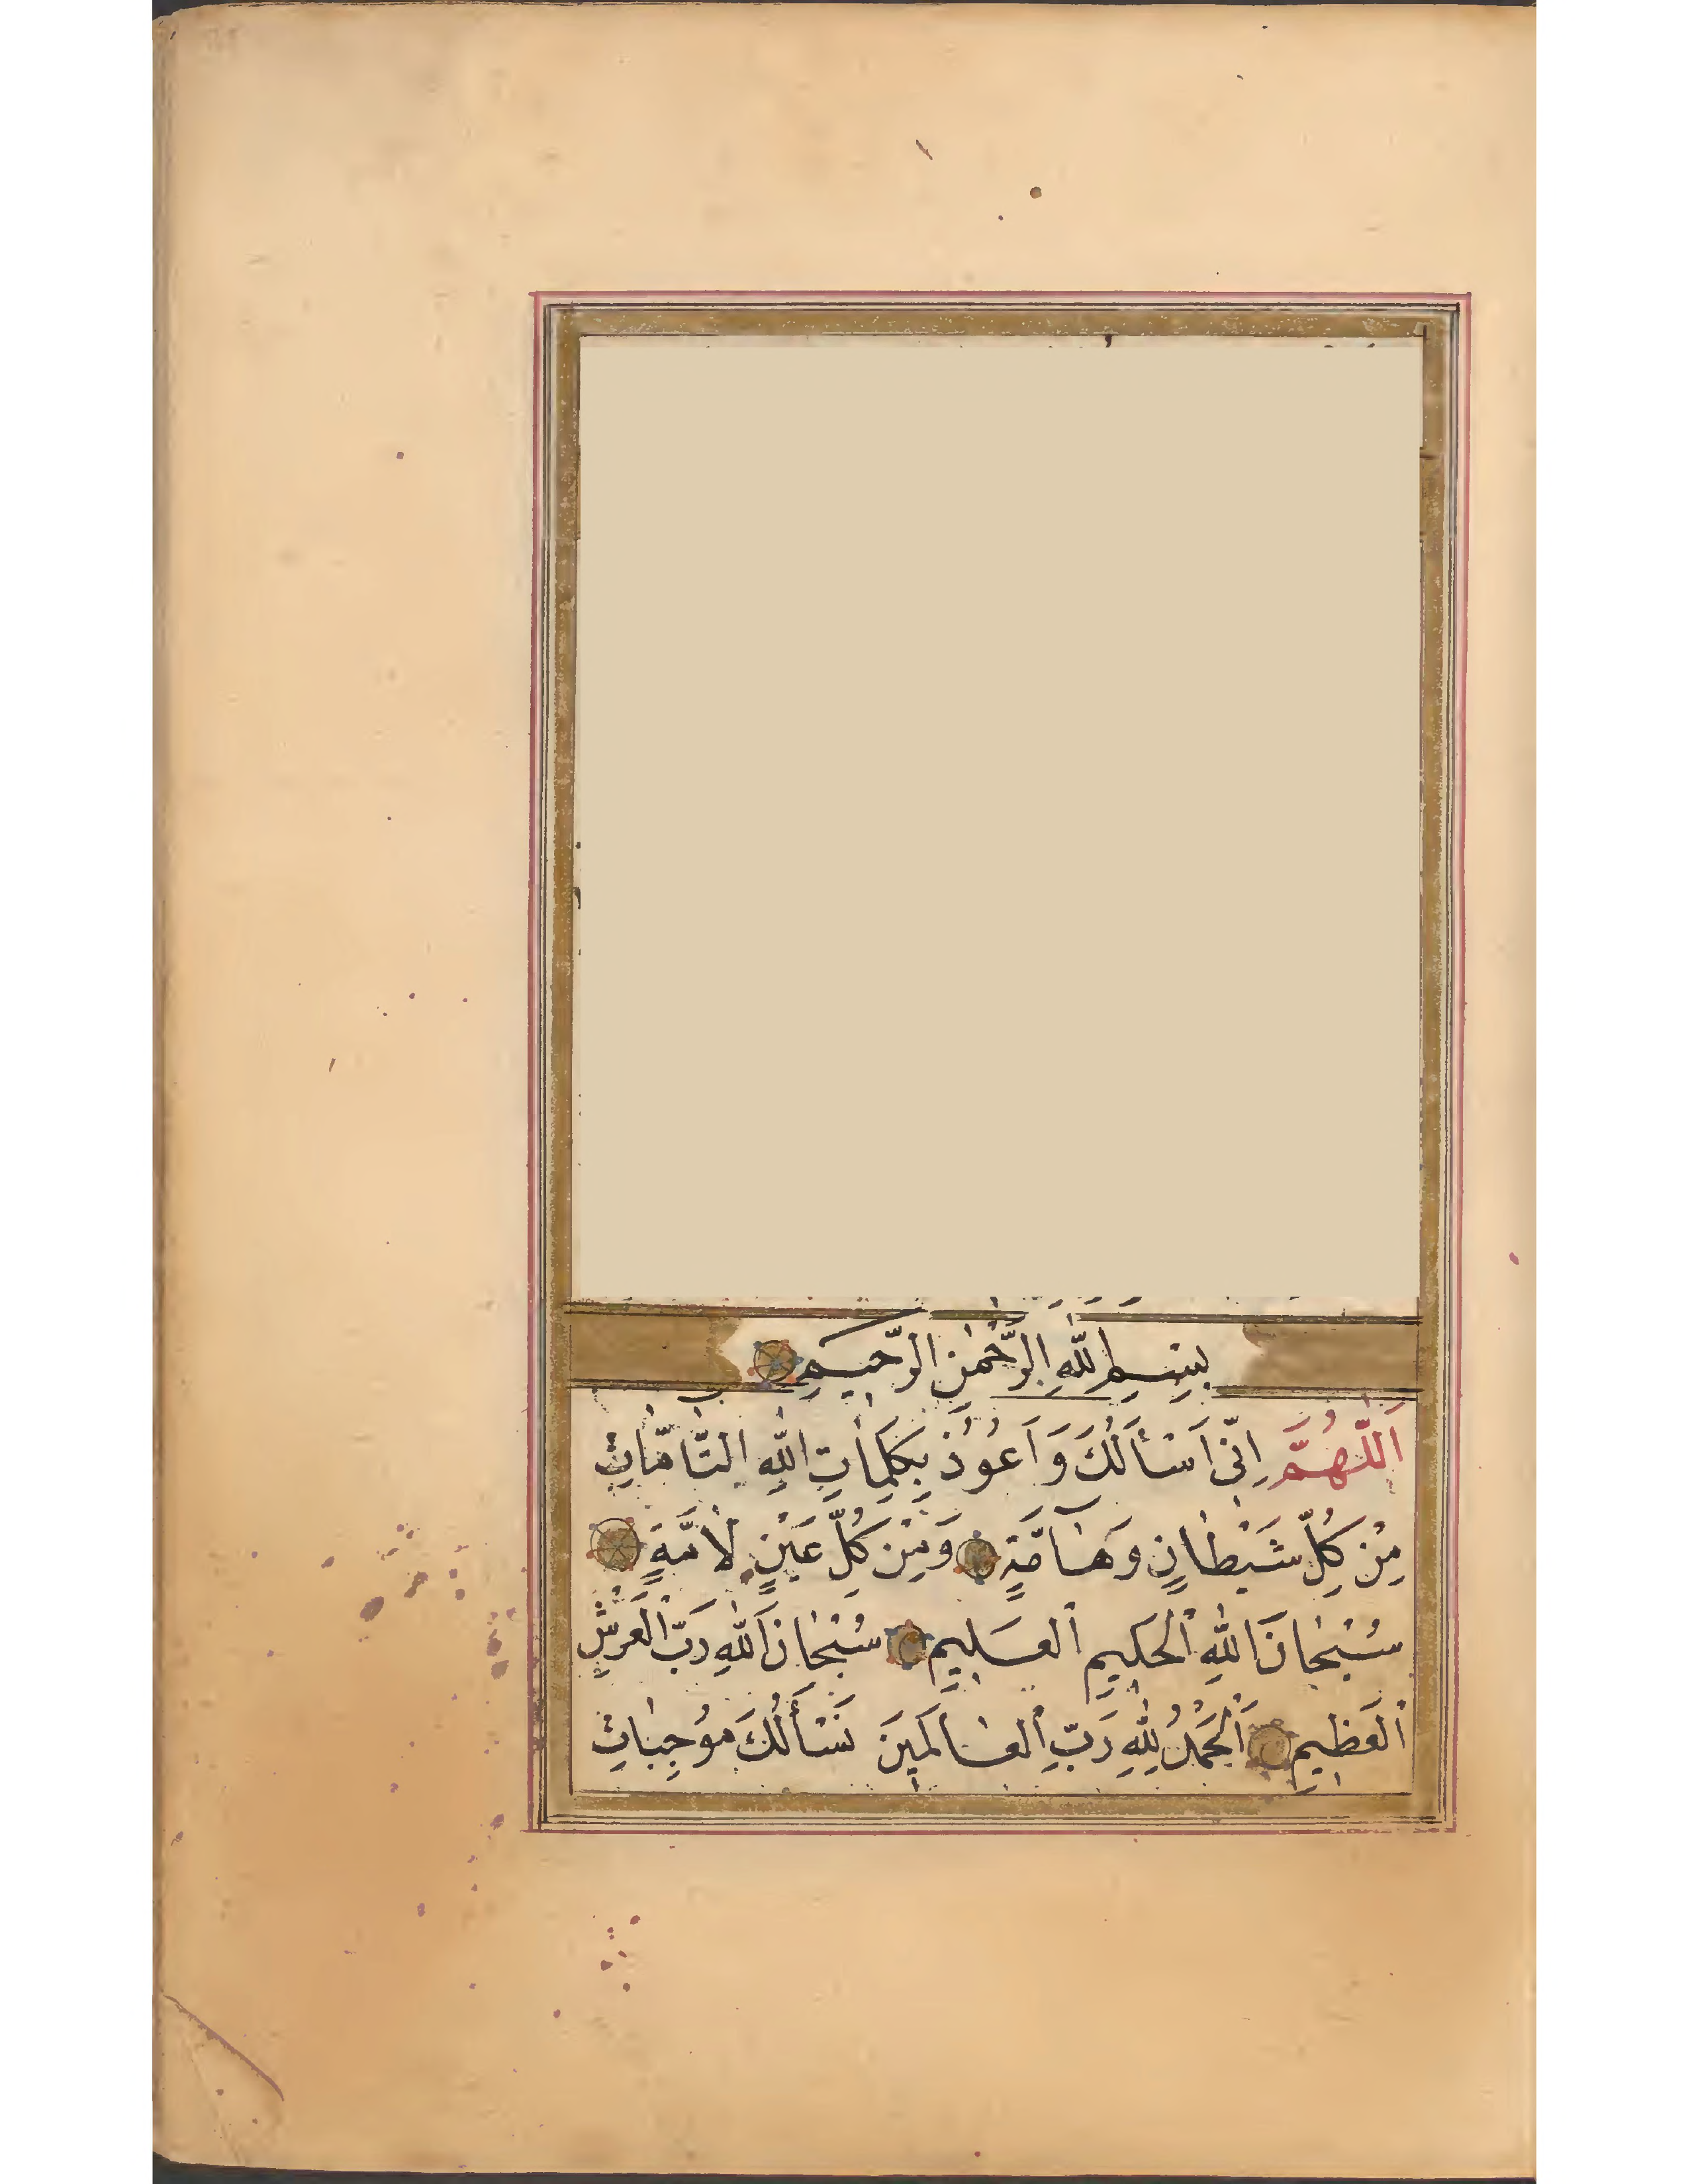 بِسْمِ اللّٰهِ الرَّحْمٰنِ الرَّحِيمِ
اَللّٰهُمَّ اِنِّى اَسْأَلُكَ وَ اَعُوُذُ بِكَلِمٰاتِ اللّٰهِ التّٰامّٰاتِ
مِنْ كُلِّ شَيْطٰانٍ وَ هٰامَّةٍ وَ مِنْ كُلِّ عَيْنٍ لٰامَّةٍ
سُبْحٰانَ اللّٰهِ الْحَكِيمِ الْعَلِيمِ سُبْحٰانَ اللّٰهِ رَبِّ الْعَرْشِ
الْعَظِيمِ اَلْحَمْدُ لِلّٰهِ رَبِّ الْعٰالَمِينَ نَسْأَلُكَ مُوجِبٰاتِ